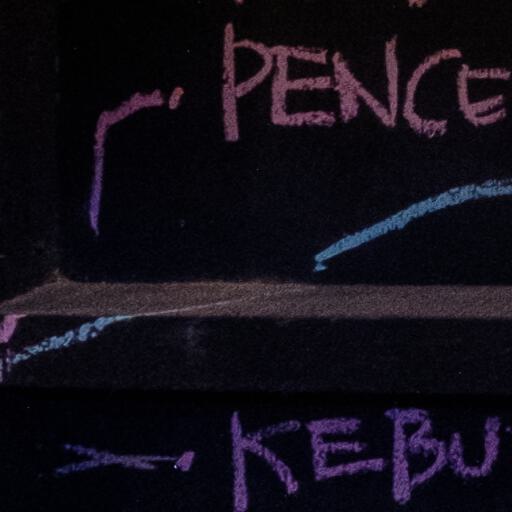 PENCE
KEBU